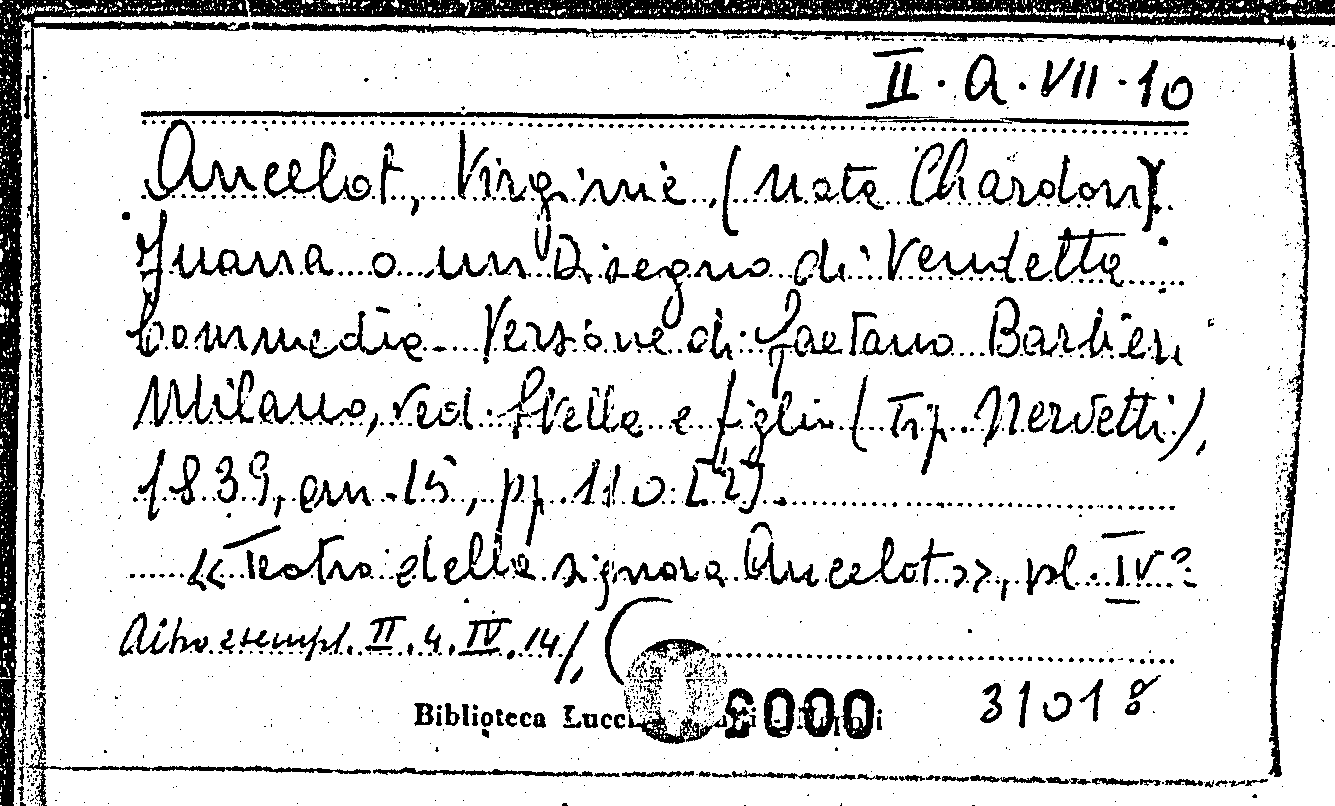 II. A. VII. 10
Ancelot, Virginie (nata Chardon).
Juana o un Disegno di Vendetta
Commedia. Versione di Gaetano Barbieri
Milano, ved. Stella e figli (Tip. Nervetti),
1839, in-15, pp. 110 [2].
«Teatro della signora Ancelot», vol. IV°
Altro esempl. II. 4. IV. 14/.
Biblioteca Lucc
31018